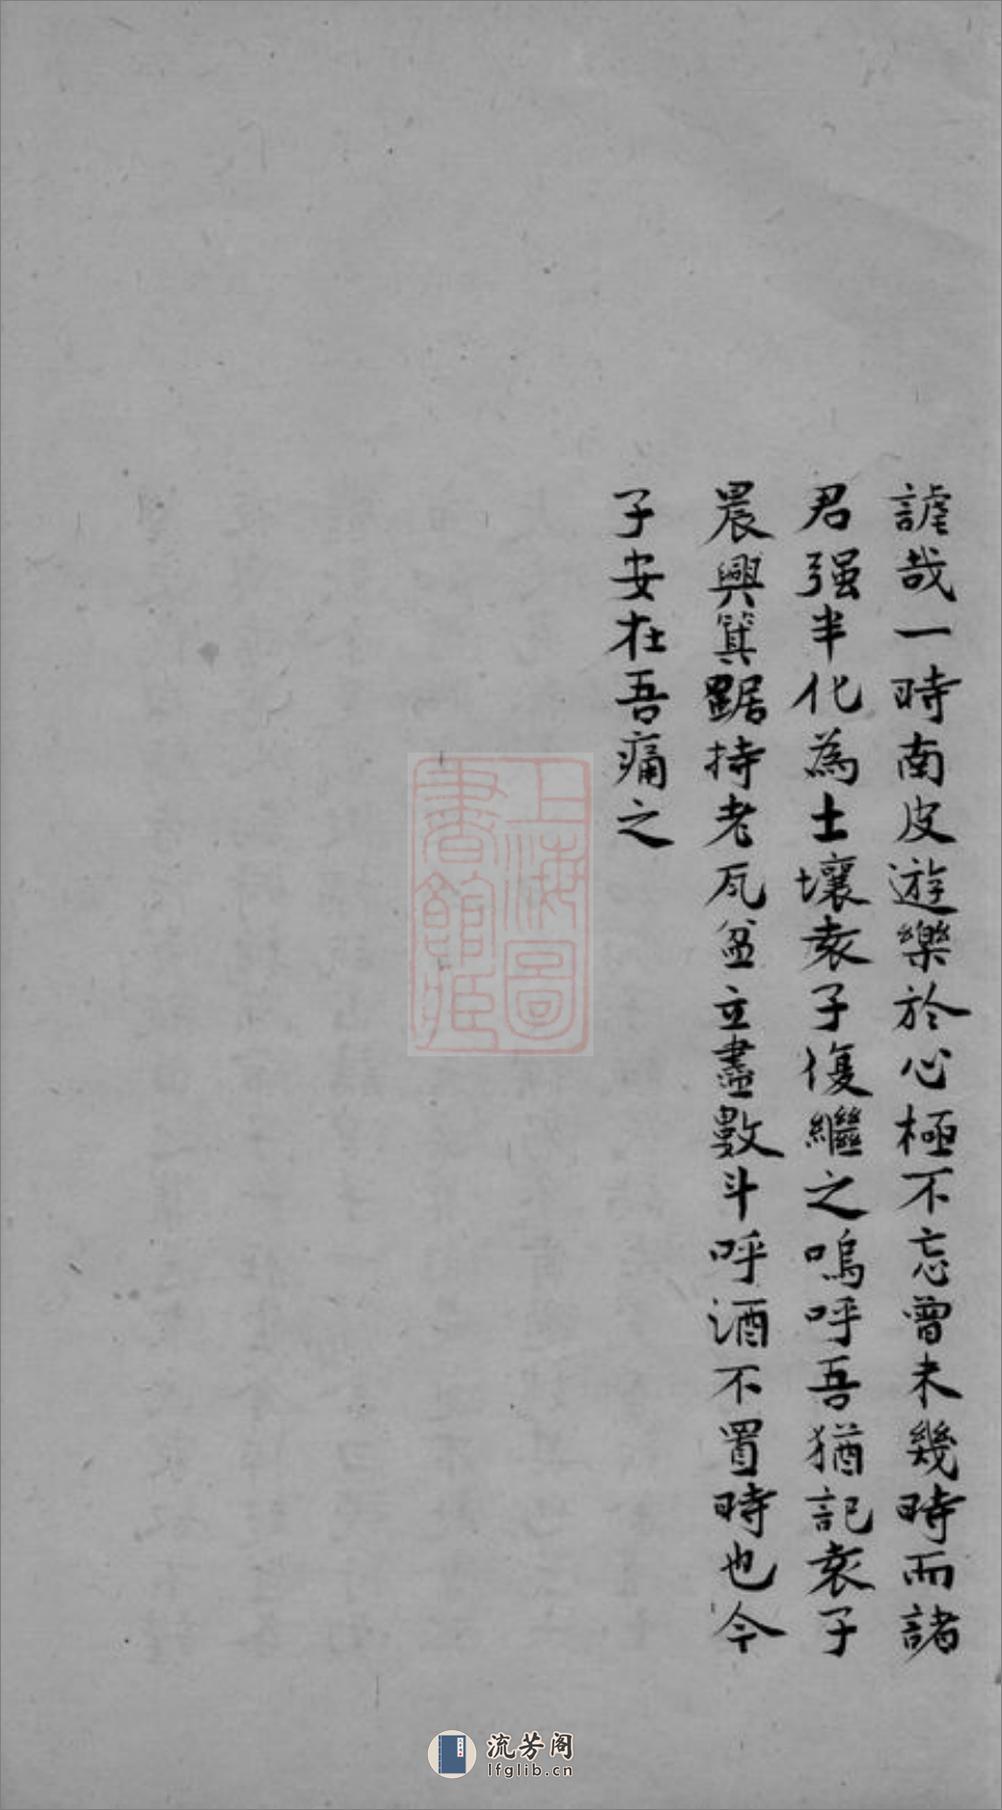 謔哉一時南皮遊樂於心極不忘曾未幾時而諸
君强半化為土壤袁子復繼之嗚呼吾猶記袁子
晨興箕踞持老瓦盆立盡數斗呼酒不置時也今
子安在吾痛之
上海圖
書館藏
流芳阁
lfglib.cn